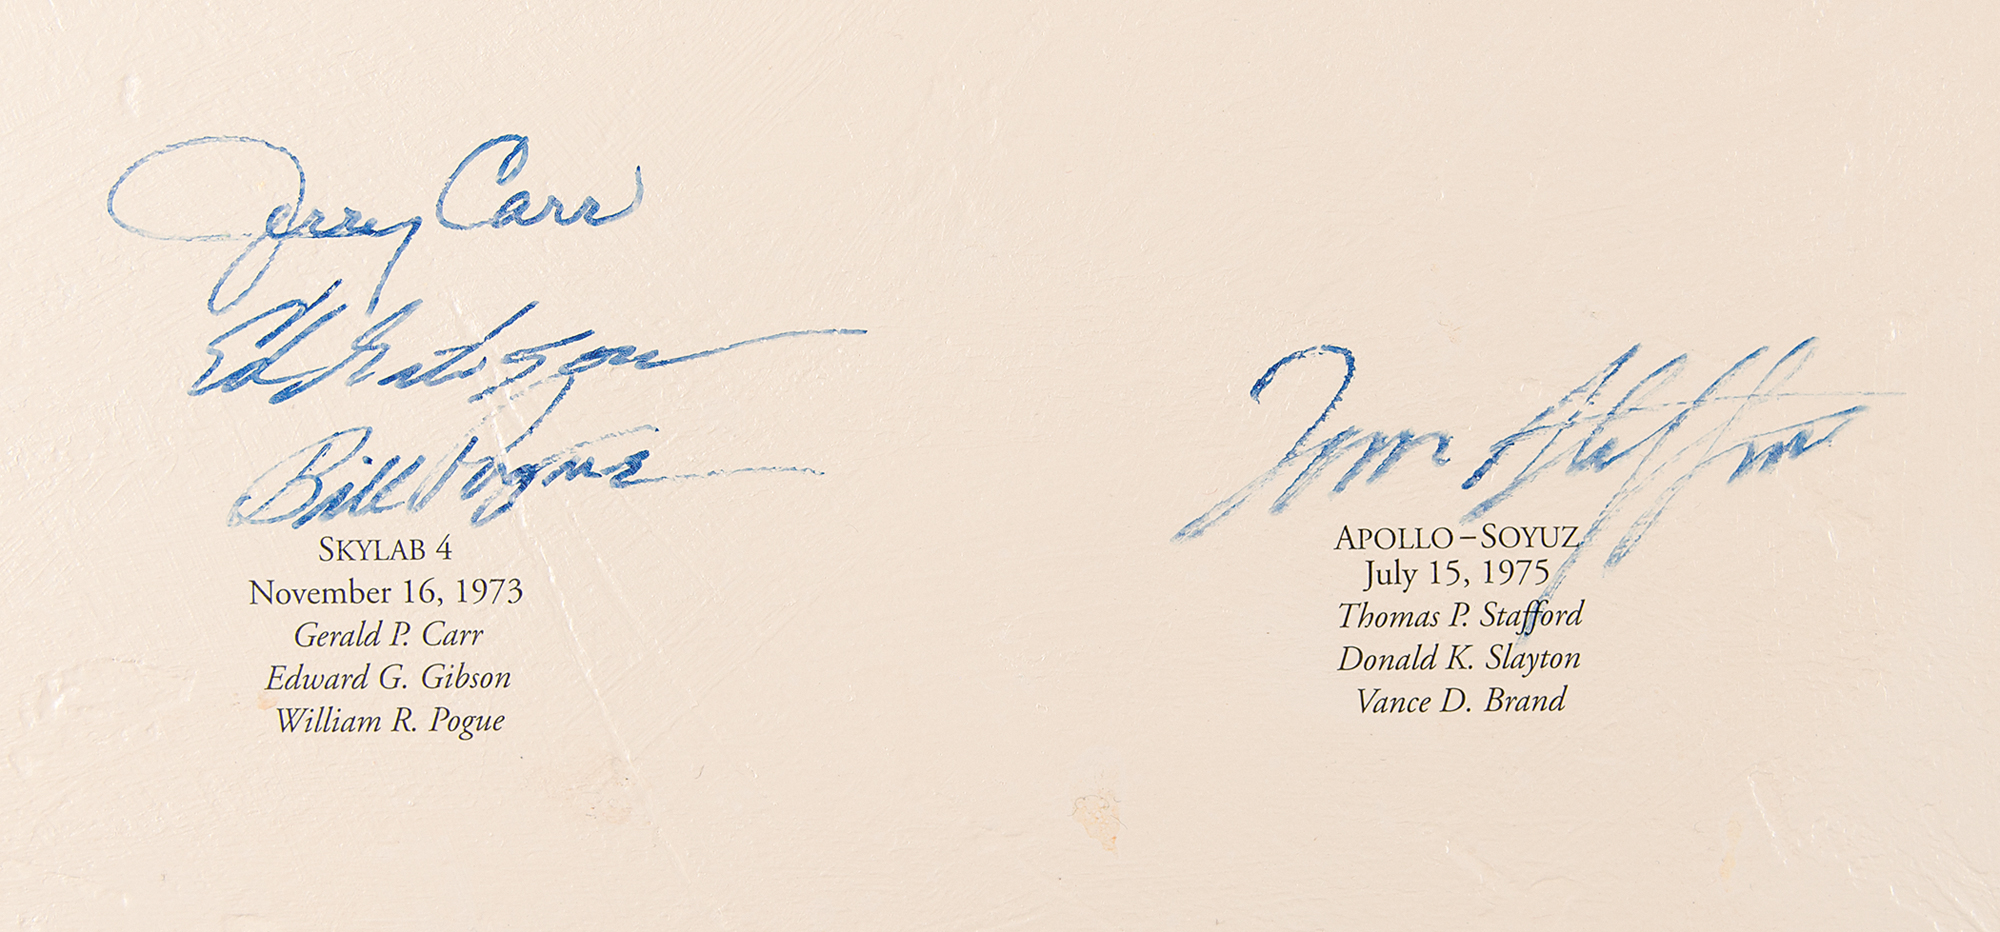 Jerry Carr
Ed Gibson
Bill Pogue
SKYLAB 4
November 16, 1973
Gerald P. Carr
Edward G. Gibson
William R. Pogue
Tom Stafford
APOLLO–SOYUZ
July 15, 1975
Thomas P. Stafford
Donald K. Slayton
Vance D. Brand